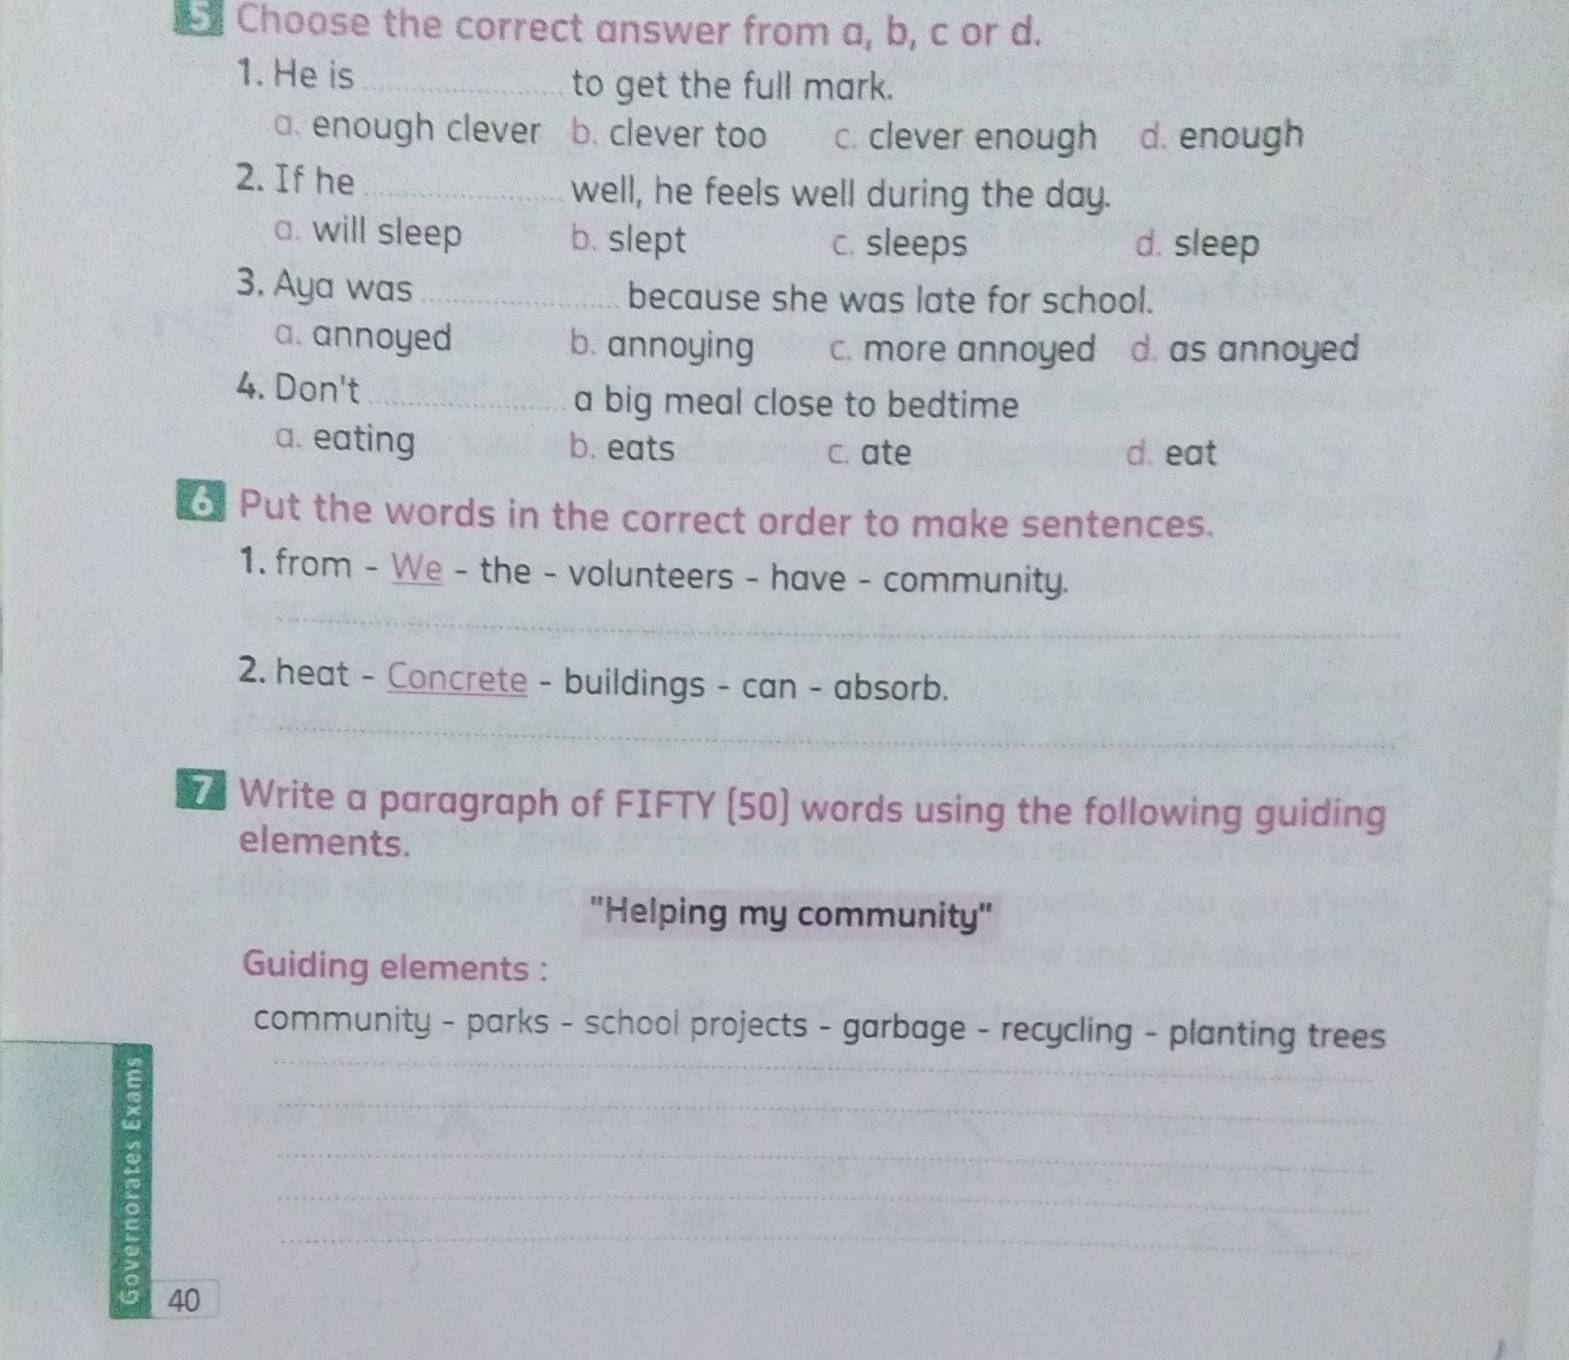 5 Choose the correct answer from a, b, c or d.
1. He is ........................ to get the full mark.
a. enough clever b. clever too c. clever enough d. enough
2. If he ........................ well, he feels well during the day.
a. will sleep b. slept c. sleeps d. sleep
3. Aya was ........................ because she was late for school.
a. annoyed b. annoying c. more annoyed d. as annoyed
4. Don't ........................ a big meal close to bedtime
a. eating b. eats c. ate d. eat
6 Put the words in the correct order to make sentences.
1. from - We - the - volunteers - have - community.
2. heat - Concrete - buildings - can - absorb.
7 Write a paragraph of FIFTY (50) words using the following guiding
elements.
"Helping my community"
Guiding elements :
community - parks - school projects - garbage - recycling - planting trees
Governorates Exams
40